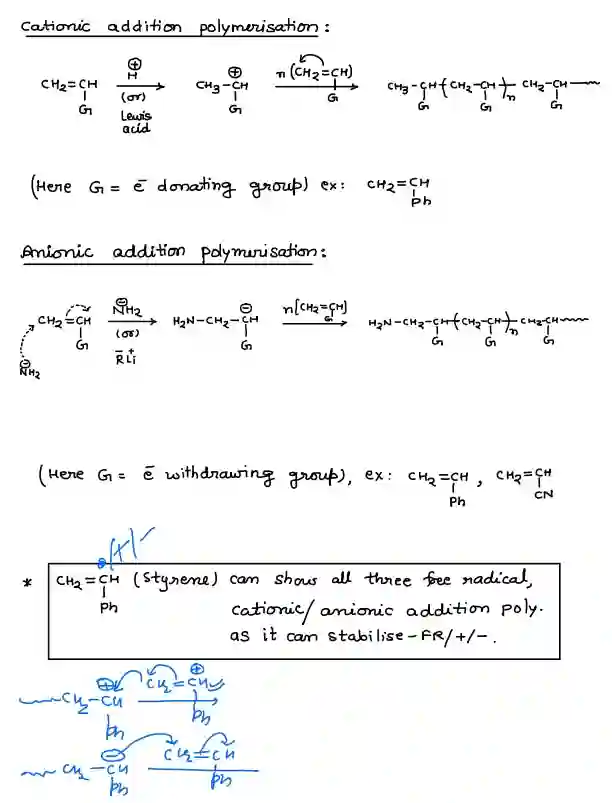 Cationic addition polymerisation:
CH2=CH
G
H⊕
(or)
Lewis acid
CH3-CH⊕
G
n(CH2=CH)
G
CH3-CH-(CH2-CH)n-CH2-CH
G G G
(Here G = ē donating group) ex: CH2=CH
Ph
Anionic addition polymerisation:
CH2=CH
G
⊖NH2
⊖NH2
(or)
R̄Li+
H2N-CH2-CH⊖
G
n[CH2=CH]
G
H2N-CH2-CH-(CH2-CH)n-CH2-CH
G G G
(Here G = ē withdrawing group), ex: CH2=CH , CH2=CH
Ph CN
•/+/-
* CH2=CH (Styrene) can show all three free radical,
Ph cationic/anionic addition poly.
as it can stabilise-FR/+/-.
CH2-CH⊕ CH2=CH⊕
Ph Ph
CH2-CH⊖ CH2=CH
Ph Ph